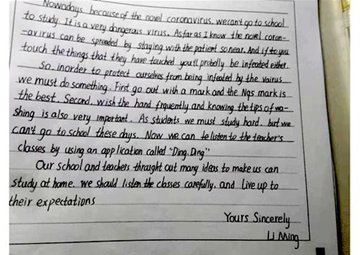 Nowadays, because of the novel coronavirus, we can't go to school
to study. It is a very dangerous virus. As far as I know the novel coron-
-avirus can be spreaded by staying with the patient so near. And if you
touch the things that they have touched you'll pribally be infected either.
So, inorder to protect ourselves from being infected by the vairus
we must do something. First go out with a mark and the N95 mark is
the best. Second, wish the hand frquently and knowing the tips of wa-
shing is also very important. As students we must study hard, but we
can't go to school these days. Now we can to listen to the teacher's
classes by using an application called "Ding Ding"
Our school and teachers throught out many ideas to make us can
study at home. We should listen the classes carefully. and live up to
their expectations
Yours Sincerely
Li Ming